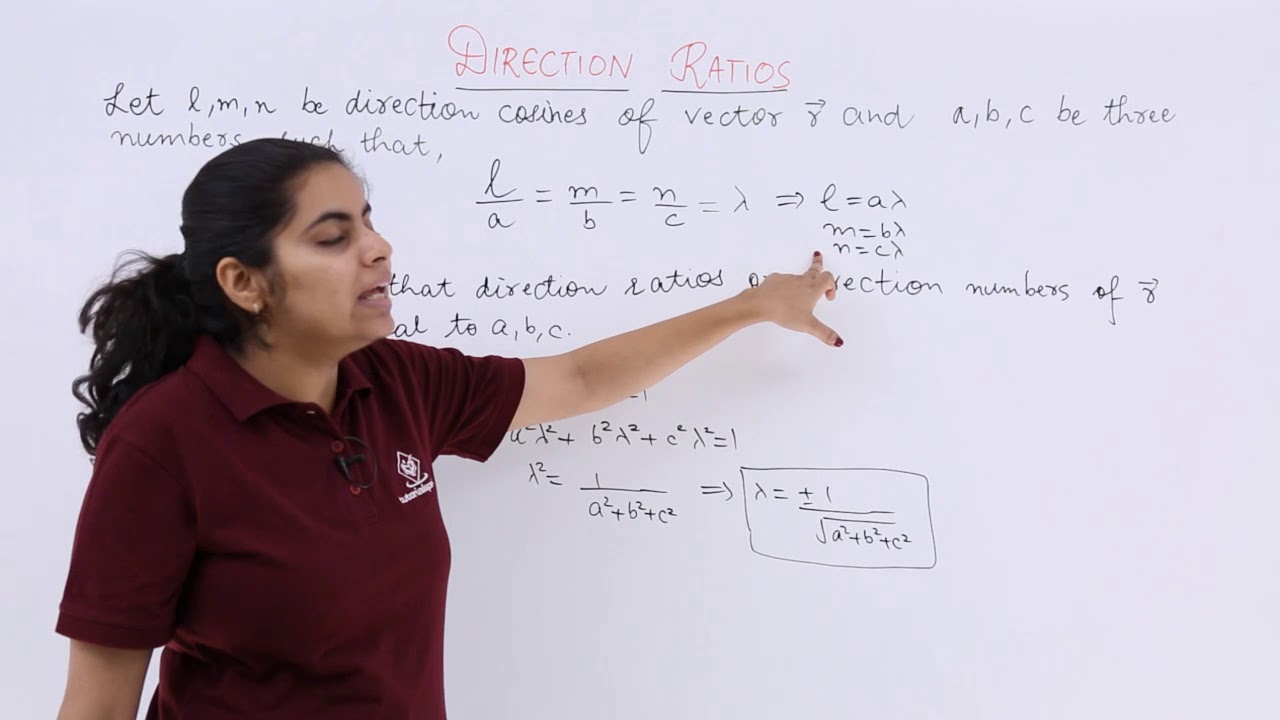 DIRECTION RATIOS
Let l, m, n be direction cosines of vector r⃗ and a, b, c be three
numbers such that,
l/a = m/b = n/c = λ ⇒ l = aλ
m = bλ
n = cλ
that direction ratios numbers of r⃗
to a, b, c.
= 1
a²λ² + b²λ² + c²λ² = 1
λ² = 1/(a² + b² + c²) ⇒ λ = ± 1/√(a² + b² + c²)